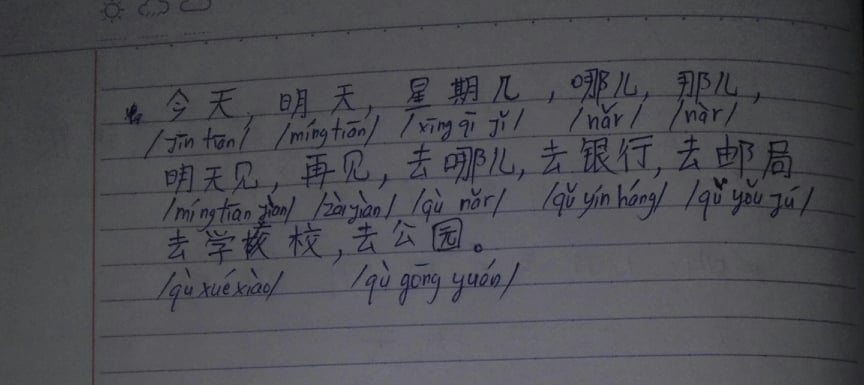 今天, 明天, 星期几, 哪儿, 那儿,
/jīn tiān/ /míngtiān/ /xīng qī jǐ/ /nǎr/ /nàr/
明天见, 再见, 去哪儿, 去银行, 去邮局
/míngtiān jiàn/ /zàijiàn/ /qù nǎr/ /qǔ yín háng/ /qǔ yǒu jú/
去学校, 去公园。
/qù xuéxiào/ /qù gōng yuán/